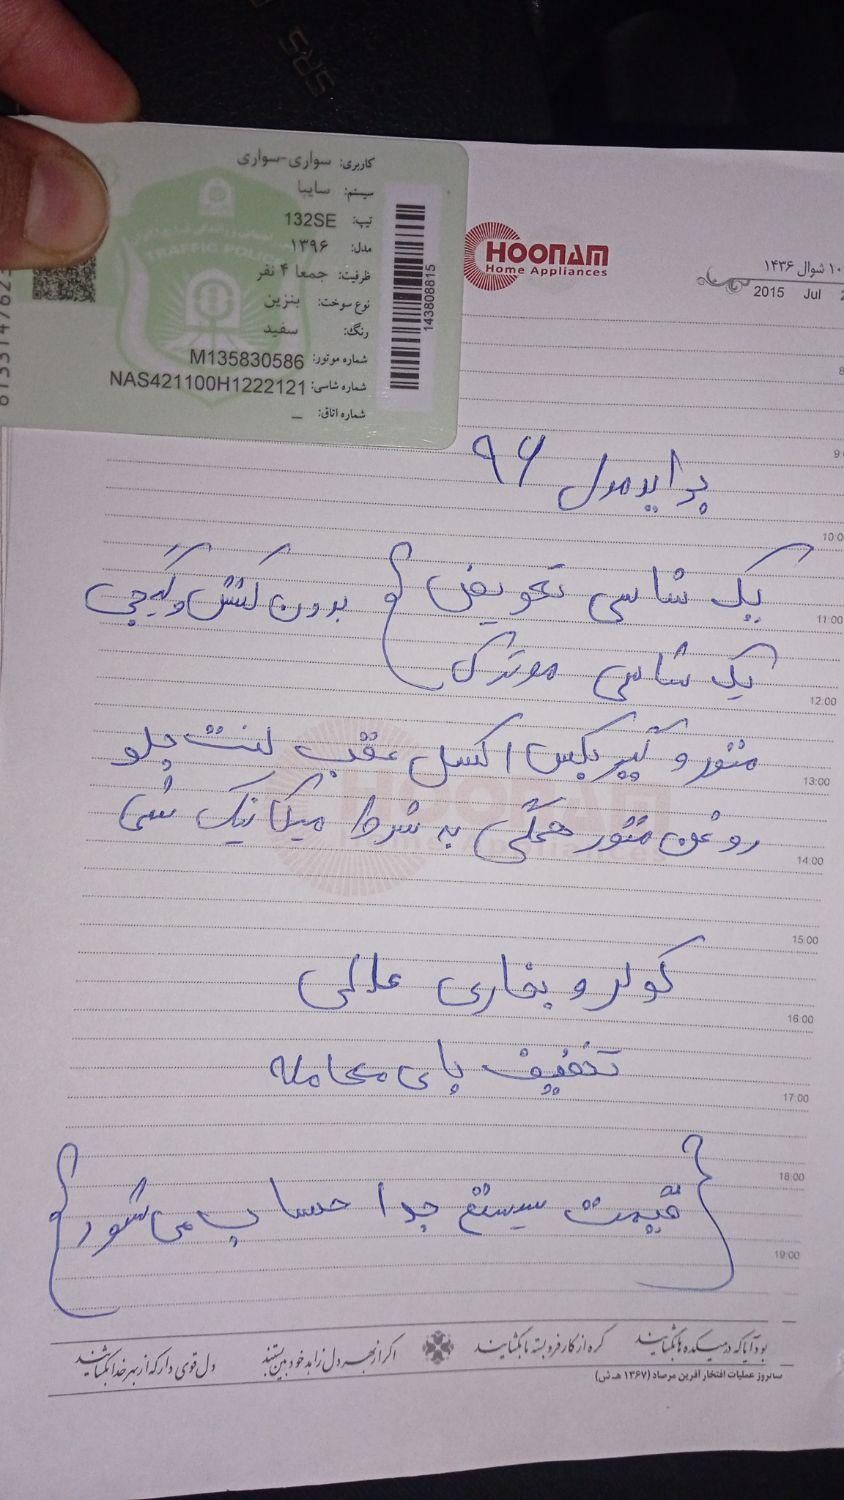 کاربری: سواری-سواری
سیستم: سایپا
تیپ: 132SE
مدل: ۱۳۹۶
ظرفیت: جمعا ۴ نفر
نوع سوخت: بنزین
رنگ: سفید
شماره موتور: M135830586
شماره شاسی: NAS421100H1222121
شماره اتاق: _
143808815
TRAFFIC
SRS
HOONAM
Home Appliances
۱۰ شوال ۱۴۳۶
2015 Jul
پراید مدل ۹۶
یک شاسی تعویض
یک شاسی موترک
بدون کنش و گیجی
متور و گیربکس اکسل عقب لنت جلو
روغن متور همگی به شرط میکانیک شی
کولر و بخاری عالی
تخفیف پای معامله
{قیمت سیستم جدا حساب می شود}
10:00
11:00
12:00
13:00
14:00
15:00
16:00
17:00
18:00
19:00
HOONAM
Home Appliances
بود آیا که در میکده ها بگشایند گره از کار فروبسته ما بگشایند
اگر از بهر دل زاهد خودبین بستند دل قوی دار که از بهر خدا بگشایند
سالروز عملیات افتخار آفرین مرصاد (۱۳۶۷ هـ ش)